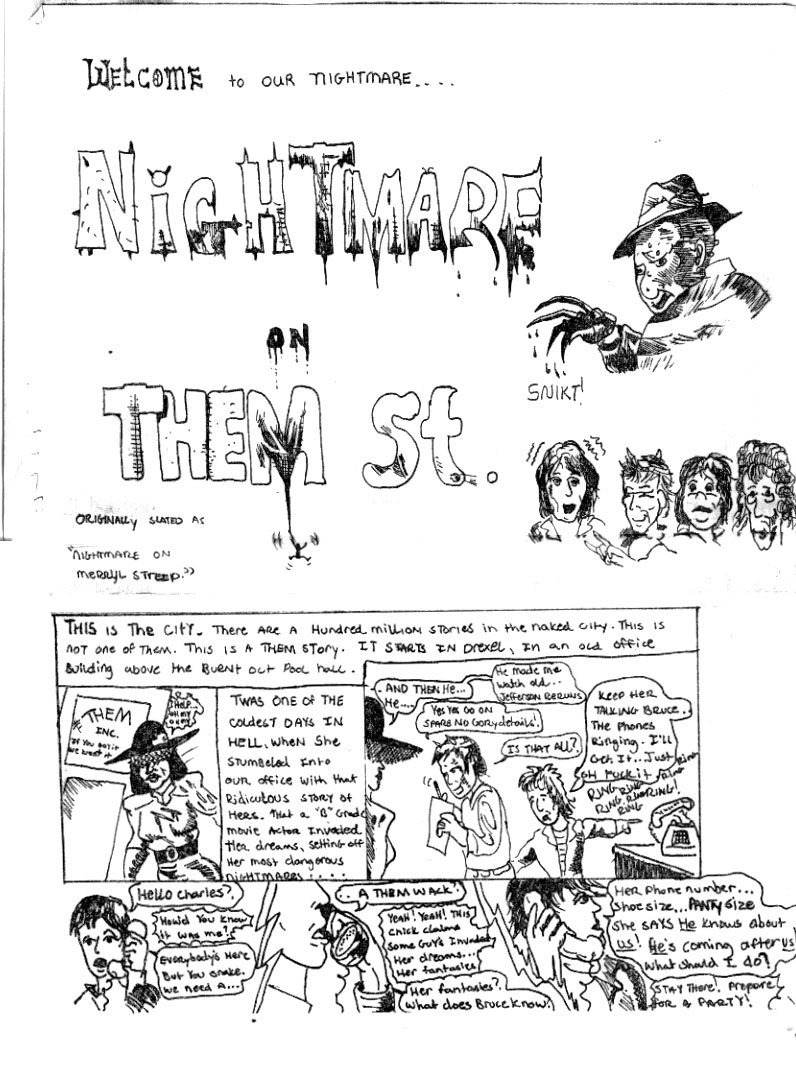 WELCOME to OUR NIGHTMARE....
NIGHTMARE
ON
THEM St.
SNIKT!
ORIGINALLY SLATED AS
"NIGHTMARE ON
MERRYL STREEP."
THIS is The CITY. There ARE A Hundred million Stories in the naked City. This is
not one of Them. This is A THEM Story. IT STARTS IN DREXEL, In an old office
Building above the Burnt out Pool hall.
THEM
INC.
If You got it
we want it
HELP...
OH MY
TWAS ONE OF THE
COLDEST DAYS IN
HELL, WHEN SHE
STUMBELED INTO
OUR OFFICE WITH That
Ridiculous Story of
HERS. That a "B" Grade
movie Actor Invaded
Her dreams, setting off
Her most dangerous
NIGHTMARES....
AND THEN He...
He....
He made me
watch old...
Jefferson reruns
Yes Yes Go on
SPARE NO Gory details!
IS THAT ALL?
KEEP HER
TALKING BRUCE..
The Phones
Ringing. I'll
Get It... Just
OH Fuck it
RING RING
RING, RING RING!
RING
Hello Charles?
How'd You Know
it was me?
Everybody's Here
But You snake.
We need A...
A THEM WACK?
YEAH! YEAH! THIS
chick claims
Some Guy's Invaded
Her dreams...
Her fantasies
Her fantasies?
What does Bruce know?
Her Phone number...
Shoe size... PANTY size
She SAYS He Knows about
us! He's coming after us
What should I do?
STAY There! Prepare
FOR A PARTY!